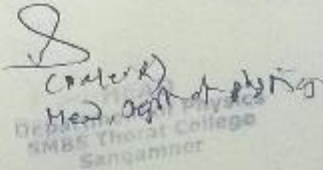 Head, Dept of physics
Department of Physics
SMBS Thorat College
Sangamner